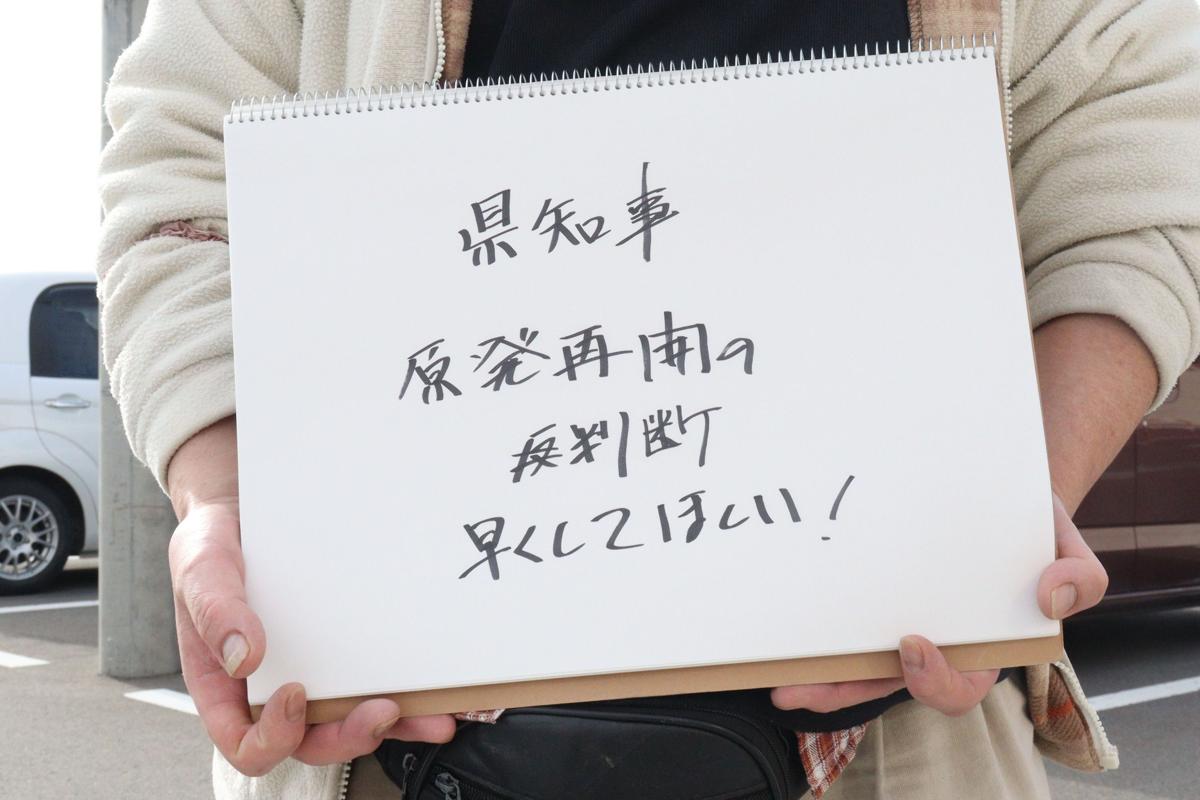 県知事
原発再開の
判断
早くしてほしい!